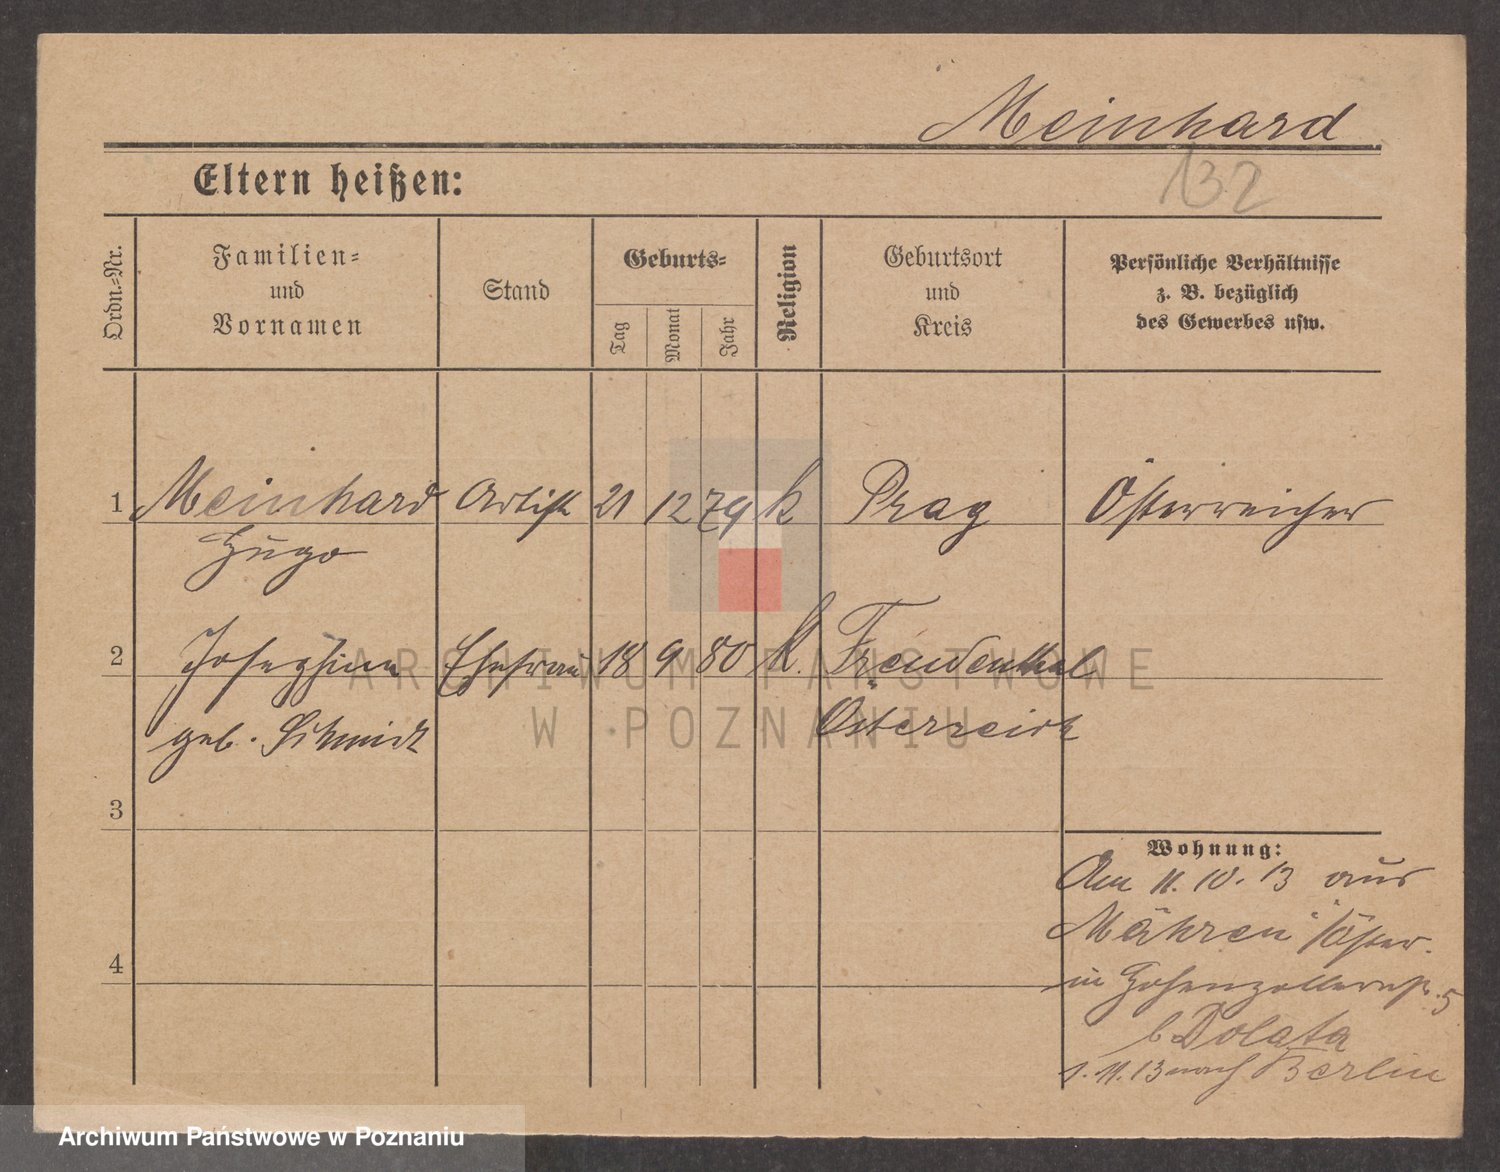 Meinhard
132
Eltern heißen:
Ordn.-Nr.
Familien-
und
Vornamen
Stand
Geburts-
Tag
Monat
Jahr
Religion
Geburtsort
und
Kreis
Persönliche Verhältnisse
z. B. bezüglich
des Gewerbes usw.
1 Meinhard Artist 21 12 79 k Prag Österreicher
Hugo
2 Josephine Ehefrau 18 9 80 k. Freudenthal
geb. Schmidt Österreich
3
4
Wohnung:
Am 11.10.13 aus
Mähren /Öster.
in Hohenzollernstr. 5
b Dolata
1.11.13 nach Berlin
ARCHIWUM PAŃSTWOWE
W POZNANIU
Archiwum Państwowe w Poznaniu